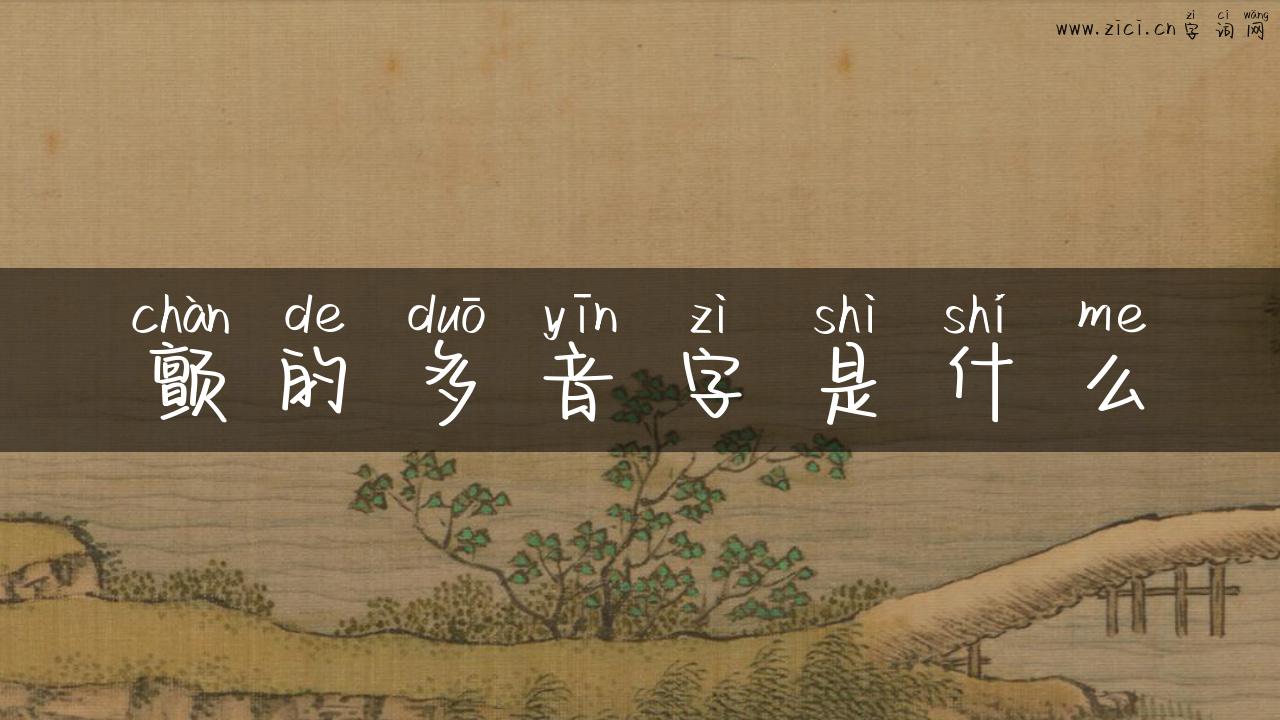 zì cí wǎng
www.zici.cn 字 词 网
chàn de duō yīn zì shì shí me
颤 的 多 音 字 是 什 么